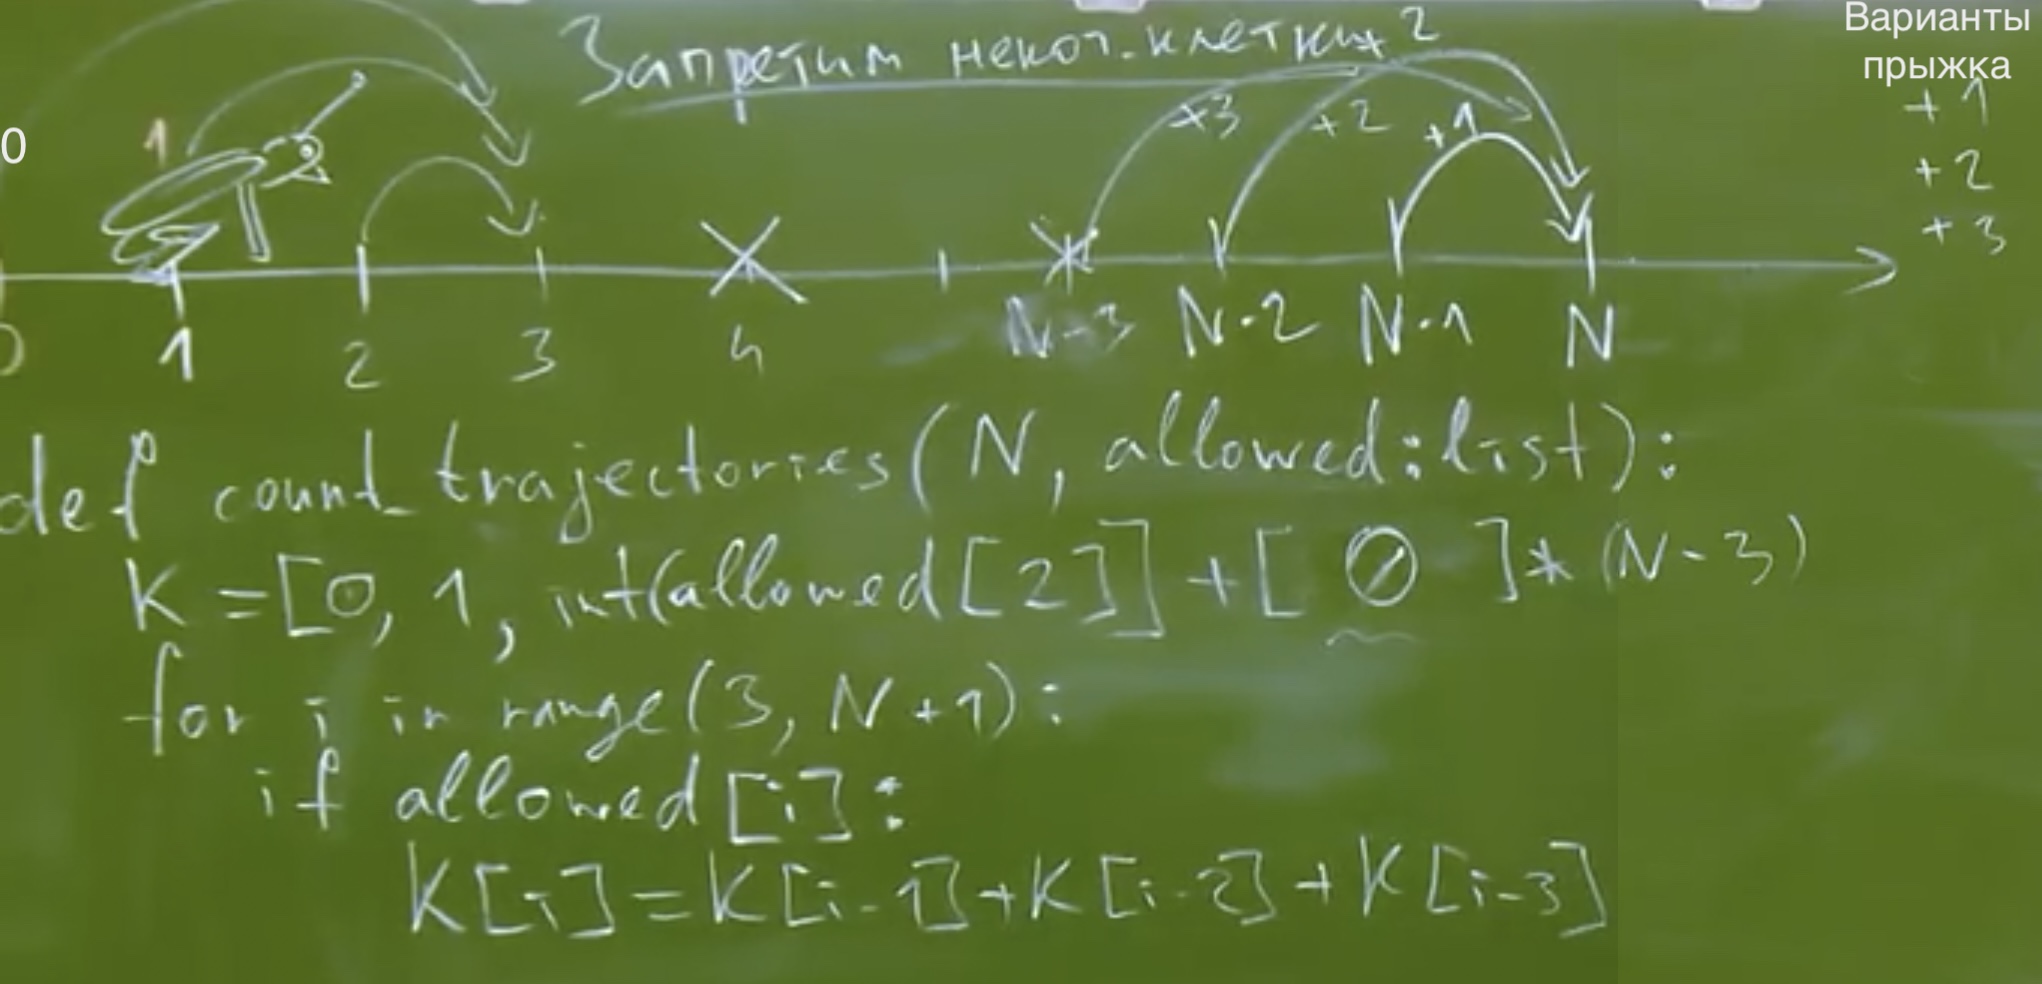 Запретим некот. клетки
+2
Варианты
прыжка
+1
+2
+3
0
1
+3
+2
+1
0 1 2 3 4 N-3 N-2 N-1 N
def count_trajectories(N, allowed:list):
K=[0, 1, int(allowed[2]]+[ 0 ]*(N-3)
for i in range(3, N+1):
if allowed[i]:
K[i]=K[i-1]+K[i-2]+K[i-3]